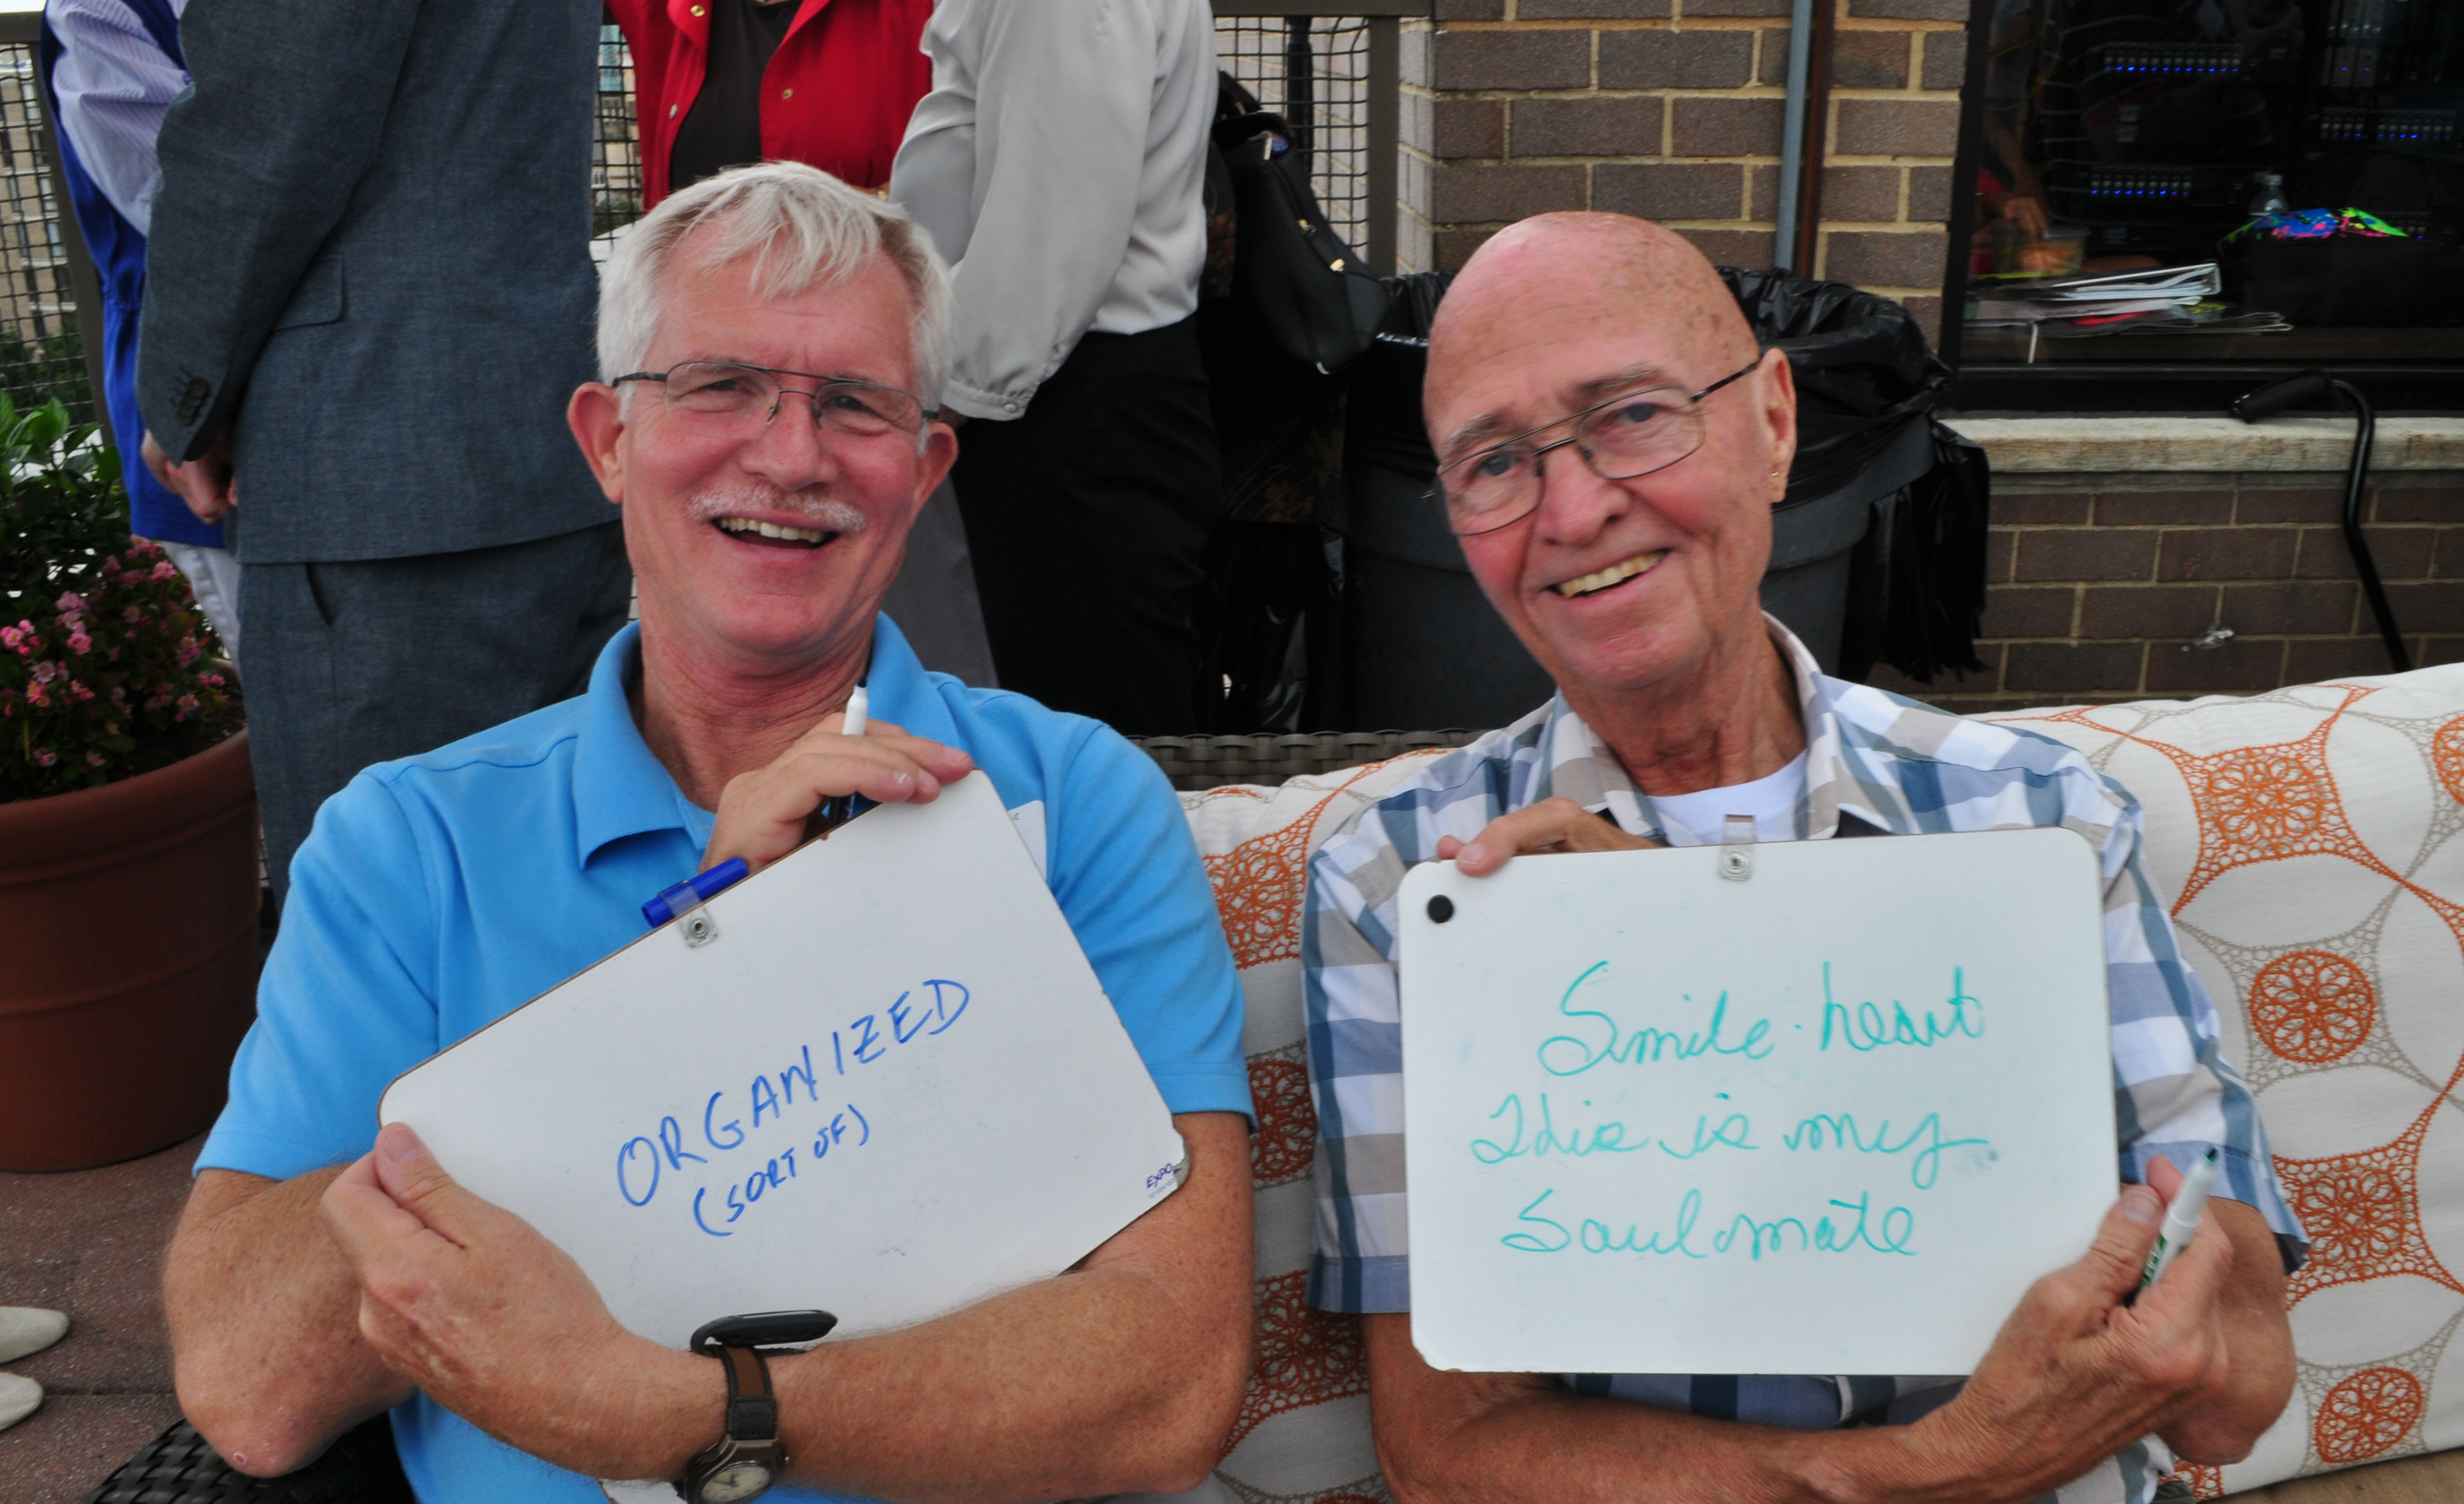 ORGANIZED
(SORT OF)
EXPO
Smile-heart
This is my
Soulmate